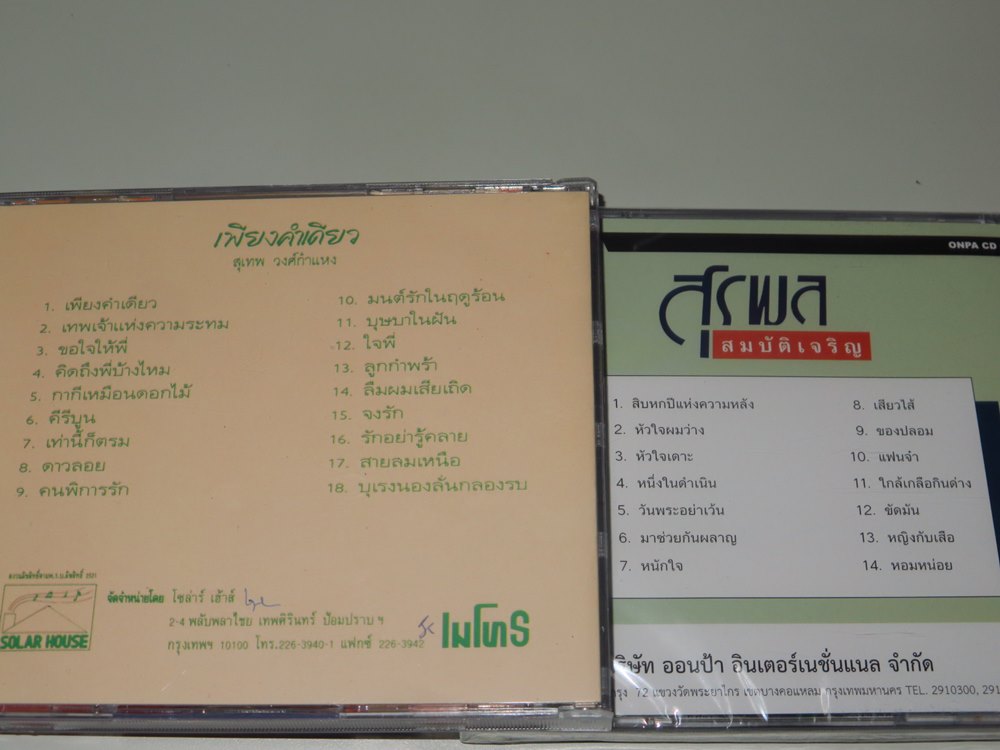 เพียงคำเดียว
สุเทพ วงศ์กำแหง
1. เพียงคำเดียว
2. เทพเจ้าแห่งความระทม
3. ขอใจให้พี่
4. คิดถึงพี่บ้างไหม
5. กากีเหมือนดอกไม้
6. คีรีบูน
7. เท่านี้ก็ตรม
8. ดาวลอย
9. คนพิการรัก
10. มนต์รักในฤดูร้อน
11. บุษบาในฝัน
12. ใจพี่
13. ลูกกำพร้า
14. ลืมผมเสียเถิด
15. จงรัก
16. รักอย่ารู้คลาย
17. สายลมเหนือ
18. บุเรงนองลั่นกลองรบ
SOLAR HOUSE
จัดจำหน่ายโดย โซล่าร์ เฮ้าส์
2-4 พลับพลาไชย เทพศิรินทร์ ป้อมปราบ ฯ
กรุงเทพฯ 10100 โทร.226-3940-1 แฟกซ์ 226-3942
เมโทร
ONPA CD
สุรพล
สมบัติเจริญ
1. สิบหกปีแห่งความหลัง
2. หัวใจผมว่าง
3. หัวใจเดาะ
4. หนึ่งในดำเนิน
5. วันพระอย่าเว้น
6. มาช่วยกันผลาญ
7. หนักใจ
8. เสียวไส้
9. ของปลอม
10. แฟนจ๋า
11. ใกล้เกลือกินด่าง
12. ขัดมัน
13. หญิงกับเสือ
14. หอมหน่อย
ริษัท ออนป้า อินเตอร์เนชั่นแนล จำกัด
รุง 72 แขวงวัดพระยาไกร เขตบางคอแหลม กรุงเทพมหานคร TEL. 2910300, 291